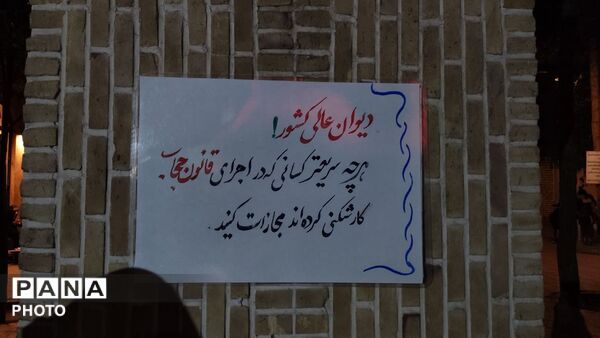 دیوان عالی کشور!
هرچه سریعتر کسانی که در اجرای قانون حجاب
کارشکنی کرده‌اند مجازات کنید.
PANA
PHOTO